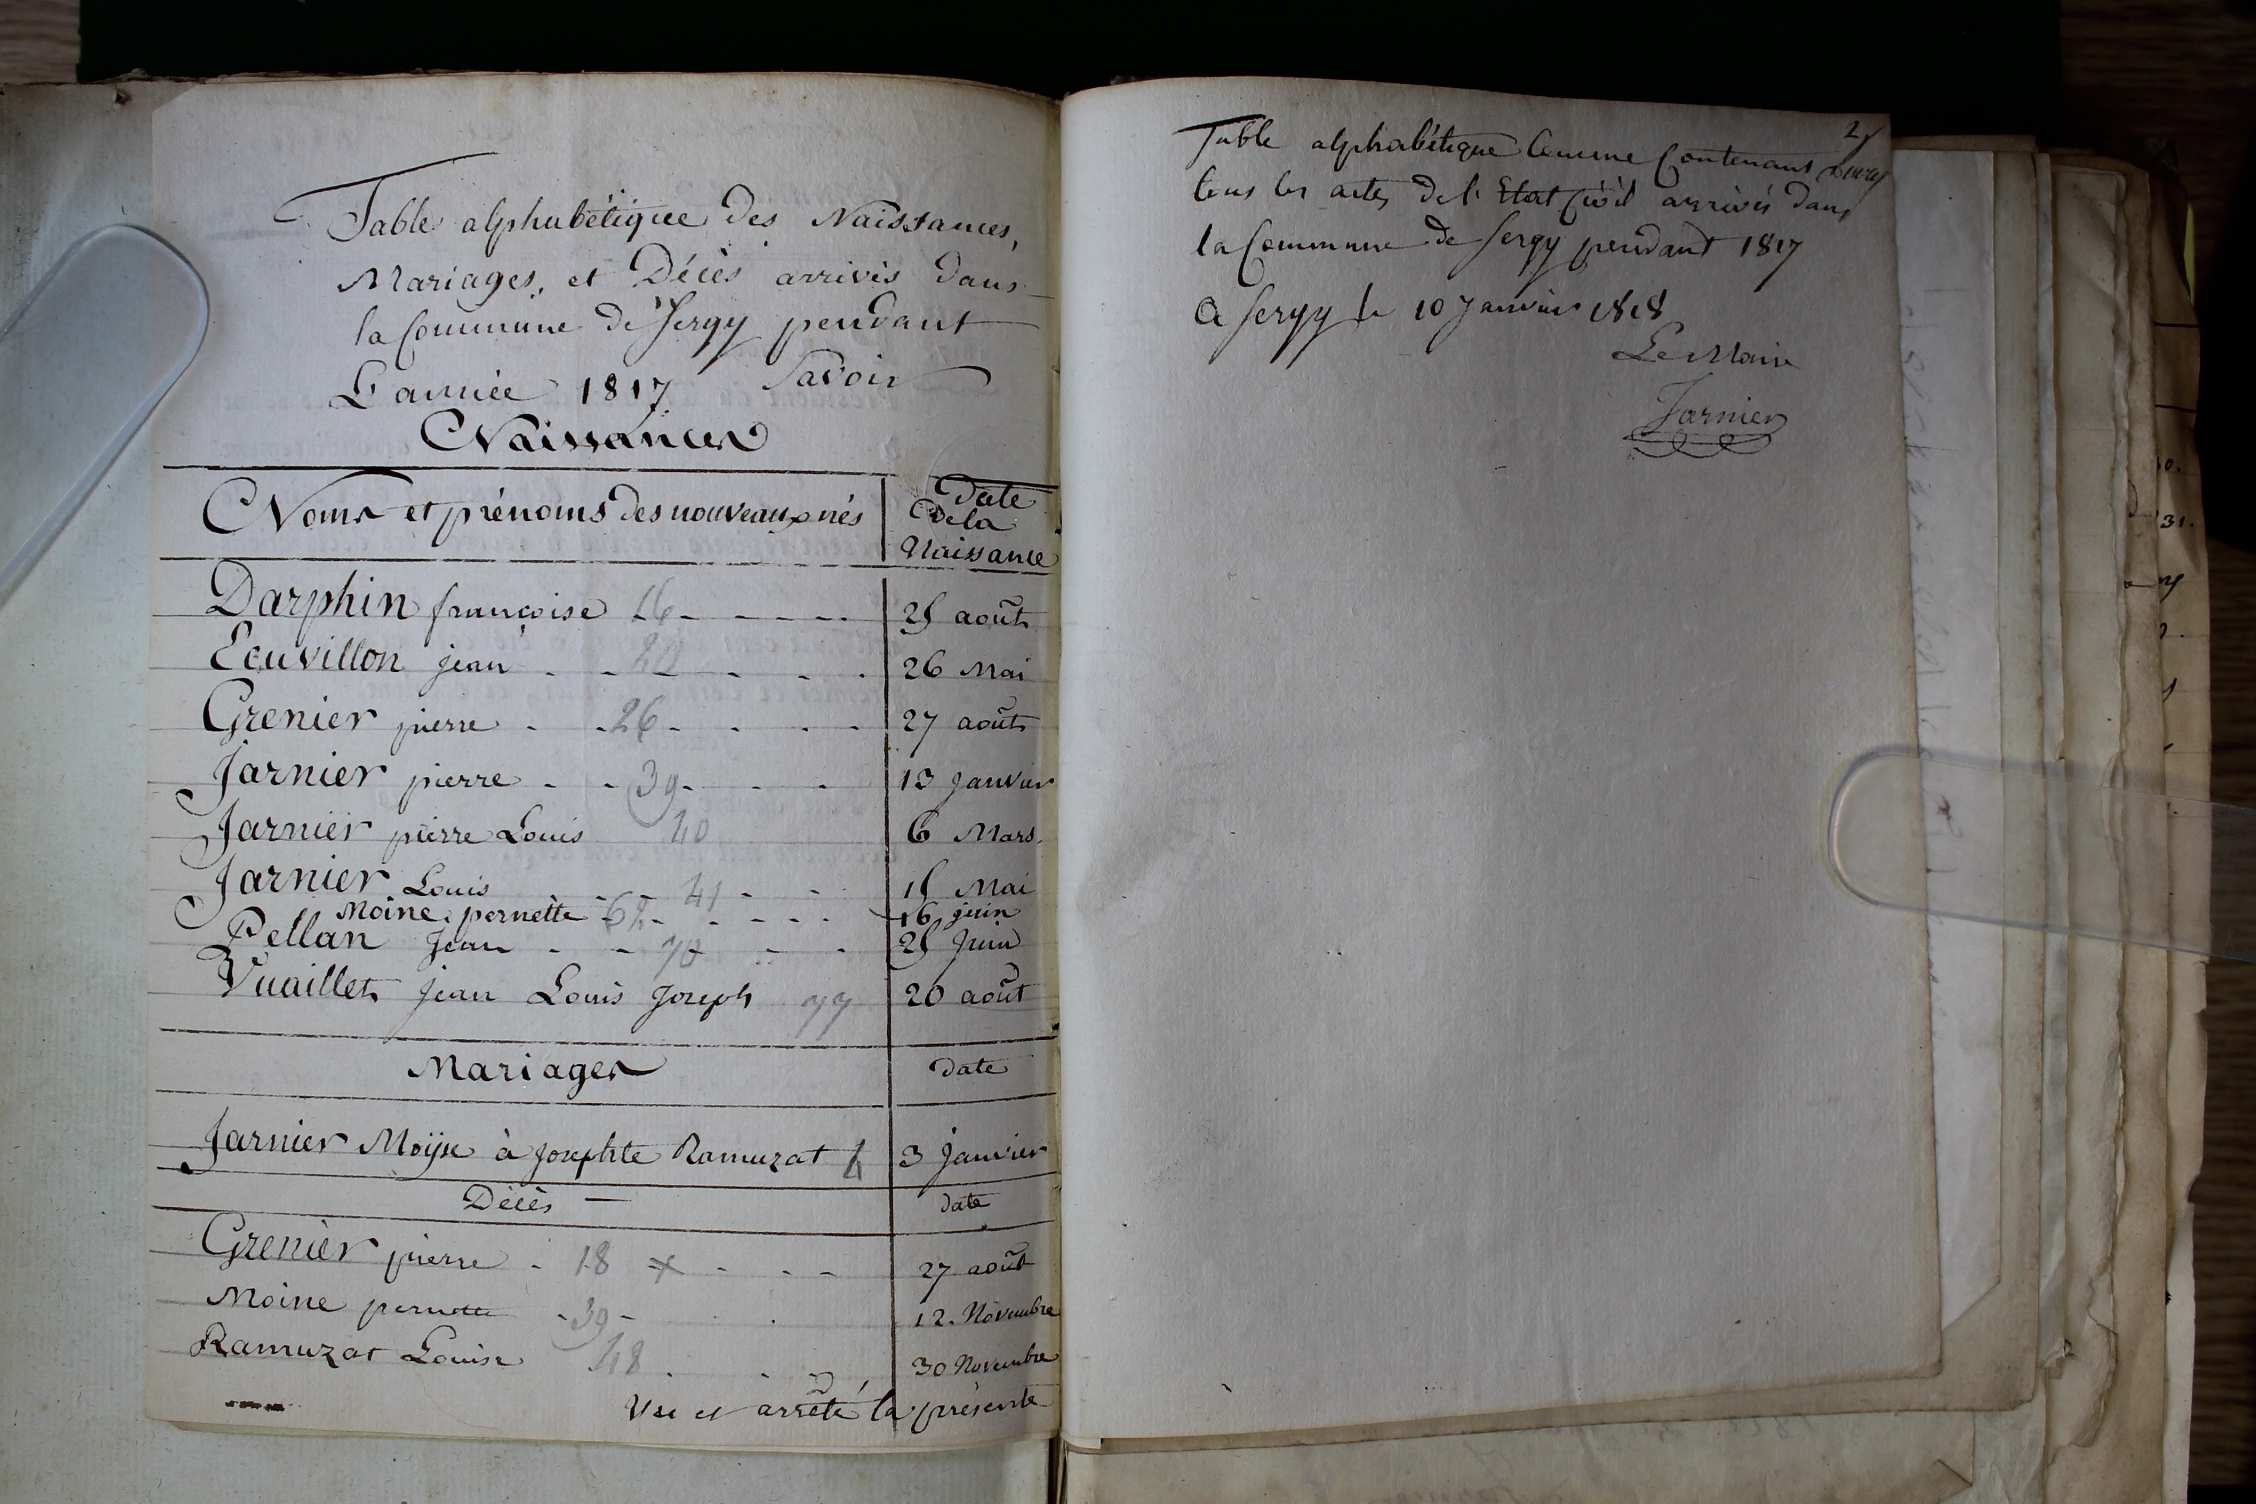 Table alphabétique des Naissances,
Mariages, et Décès arrivés dans
la Commune de Sergy pendant
L'année 1817 Savoir
Naissances
Noms et prénoms des nouveaux nés
Date
De la
Naissance
Darphin françoise 16 25 août
Ecuvillon jean 20 26 Mai
Grenier pierre 26 27 août
Jarnier pierre 39 13 Janvier
Jarnier pierre Louis 40 6 Mars
Jarnier Louis 41 15 Mai
Moine pernette 16 juin
Pellan Jean 70 25 Juin
Vuaillet Jean Louis Joseph 99 20 août
Mariages Date
Jarnier Moÿse à Josephte Ramuzat 3 Janvier
Décès date
Grenier pierre 18 27 août
Moine pernette 39 12 Novembre
Ramuzat Louise 48 30 Novembre
Vu et arrêté la présente
Table alphabétique Comme Contenant
tous les actes de l'Etat Civil arrivés dans
la Commune de Sergy pendant 1817
a Sergy le 10 Janvier 1818
Le Maire
Jarnier